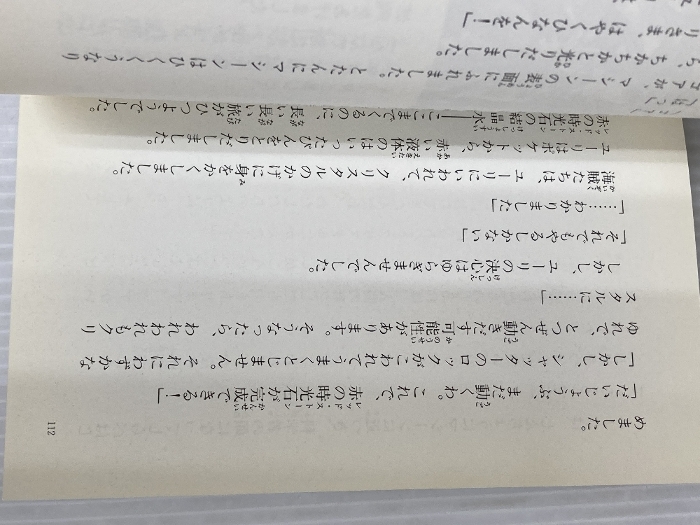 めました。
「だいじょうぶ、まだ動くわ。これで、赤の時光石が完成できる！」
「しかし、シャッターのロックがこわれてうまくとじません。それにわずかな
ゆれで、とつぜん動きだす可能性があります。そうなったら、われわれもクリ
スタルに……」
しかし、ユーリの決心はゆらぎませんでした。
「それでもやるしかない」
「……わかりました」
海賊たちは、ユーリにいわれて、クリスタルのかげに身をかくしました。
ユーリはポケットから、赤い液体のはいったびんをとりだしました。
赤の時光石の結晶水――ここまでくるのに、長い長い旅がひつようでした。
112
アが、マシーンの表面にふれました。とたんにマシーンはひくくうなり
ら、ちかちかと光りだしました。
りさま、はやくひなんを！」